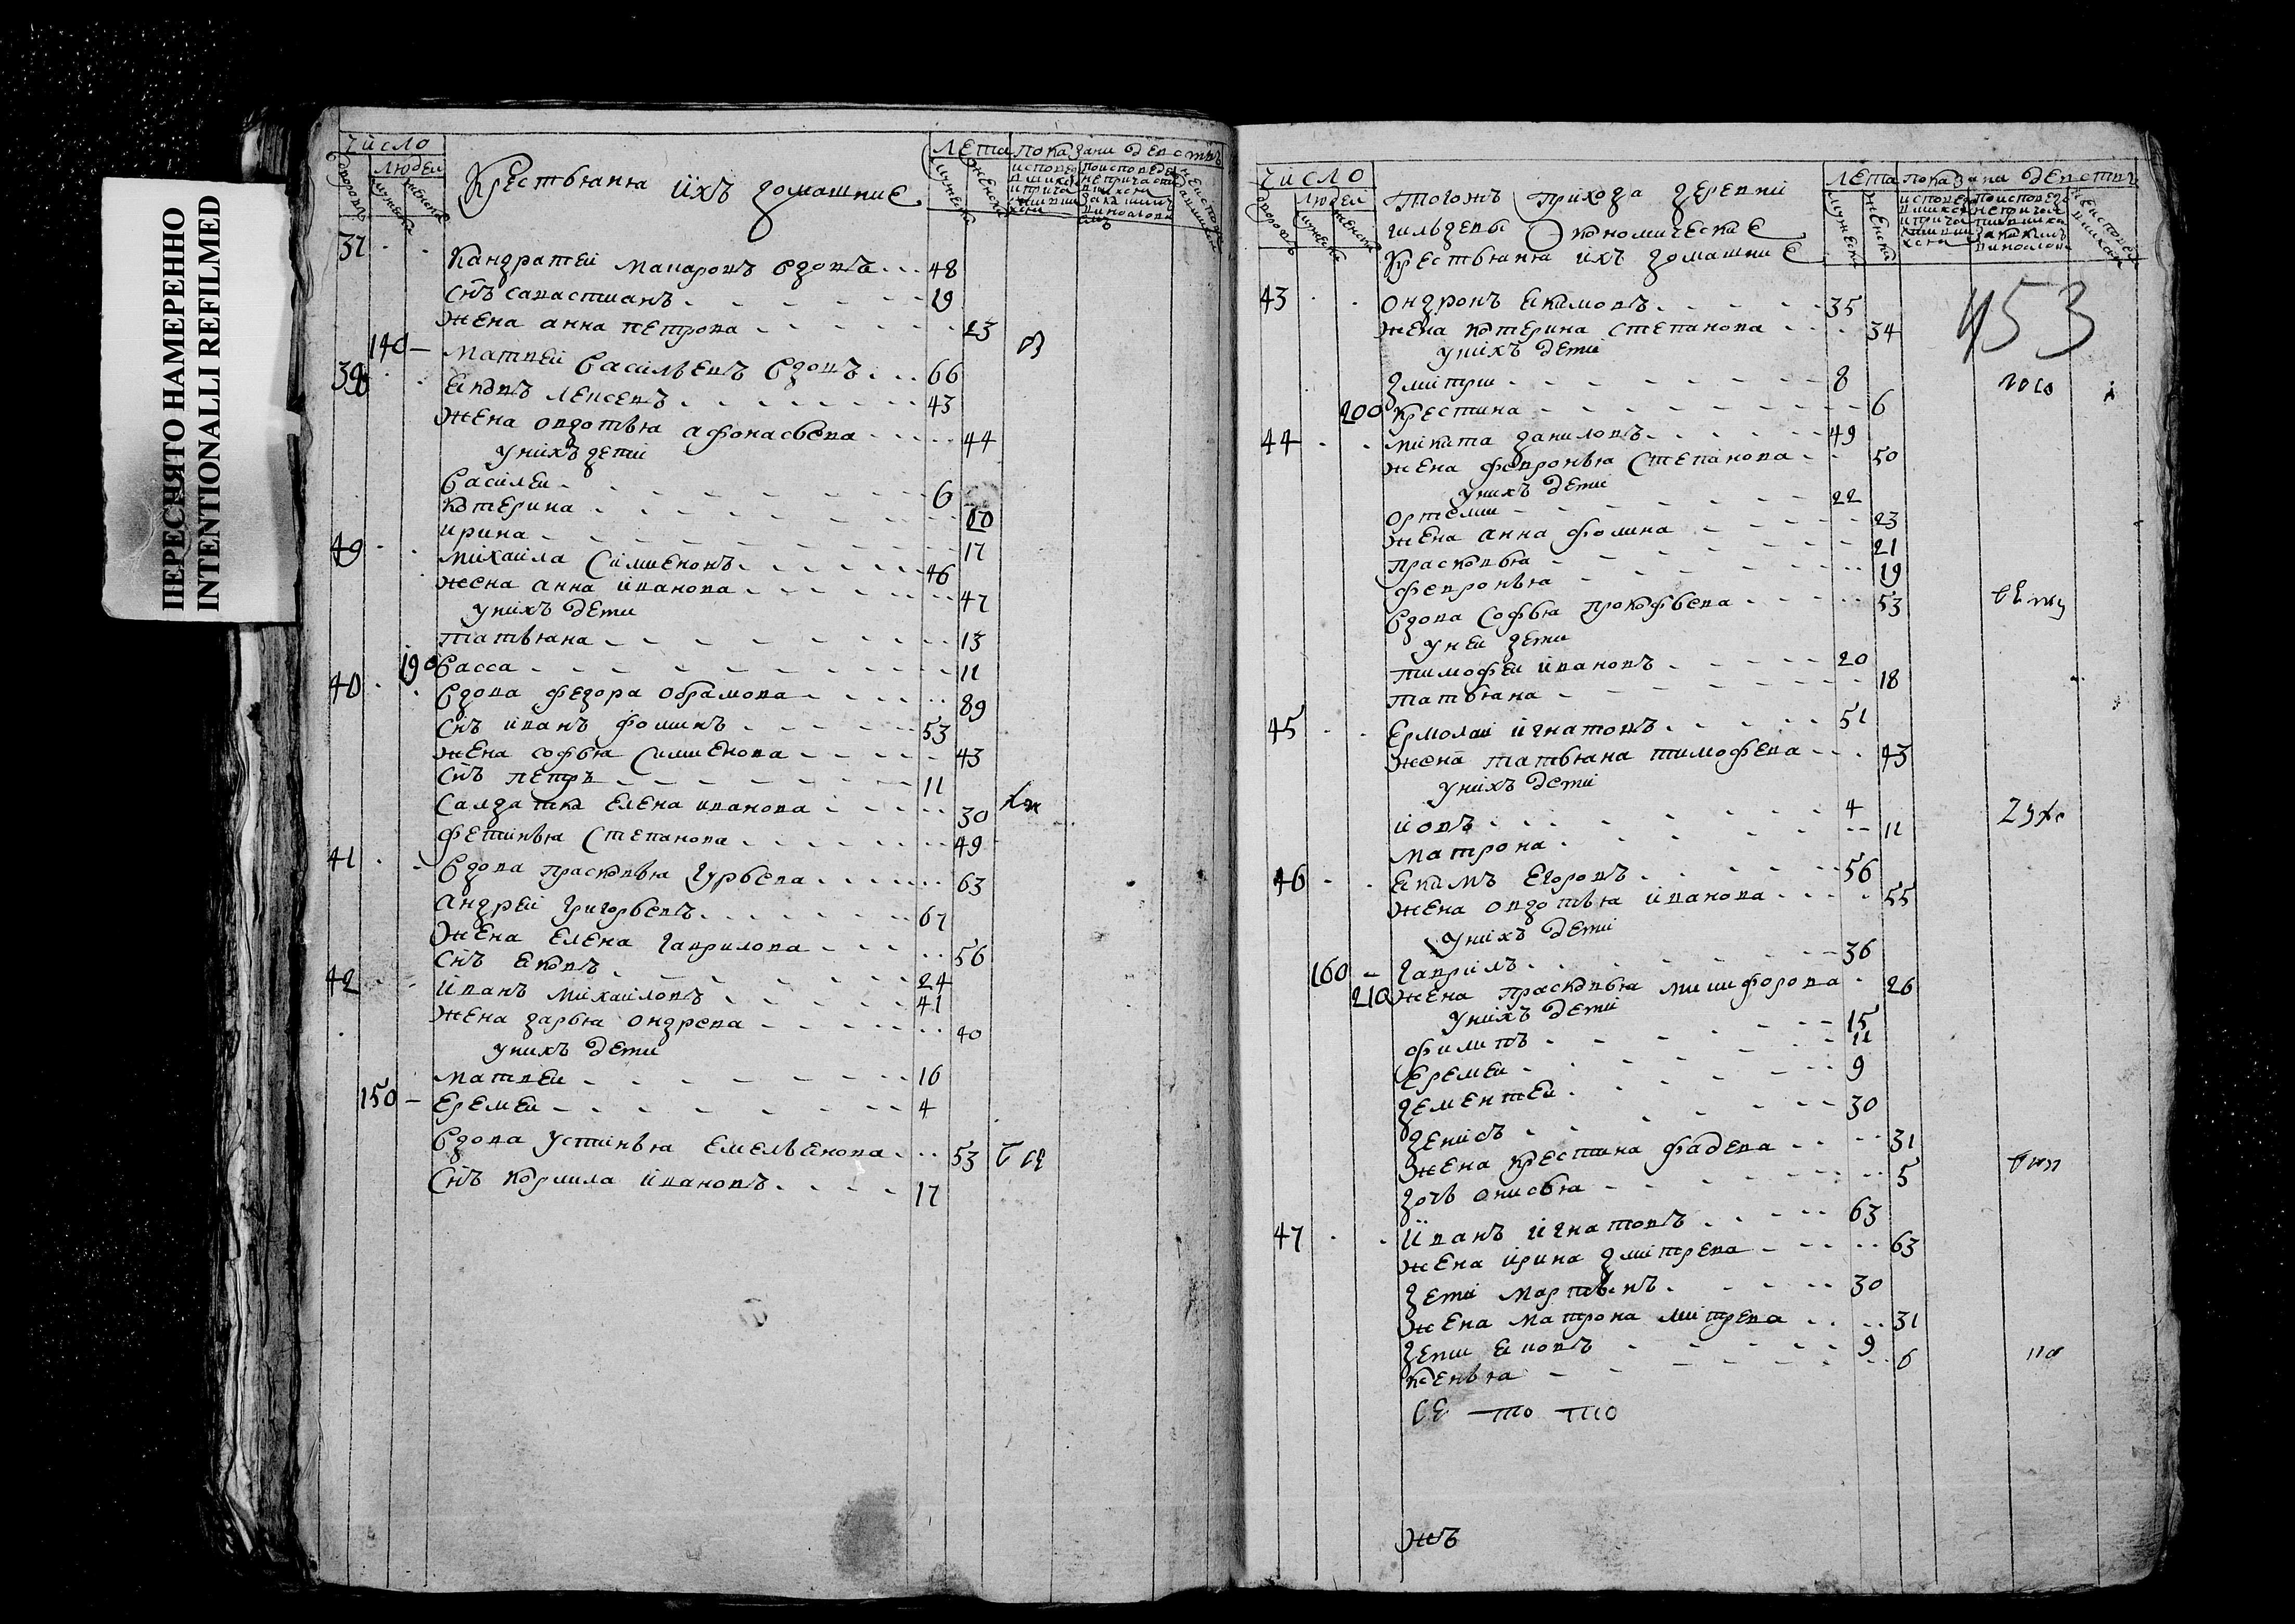 ПЕРЕСНЯТО НАМЕРЕННО
INTENTIONALLI REFILMED
число
людей
лета показани действъ
Крестьяня ихъ домашние
37
Кандратей Макаровъ вдовъ 48
снъ савастианъ 19
жена анна петрова 23
140 Матвей васильевъ вдовъ 66
39 ековъ 43
жена овдотья афонасьева 44
у нихъ дети
василеи 6
котерина
ирина 17
49 михаила симиеновъ 46
жена анна иванова 47
у нихъ дети
татьяна 13
190 васса 11
40 вдова федора обрамова 89
снъ иванъ фоминъ 53
жена софья симиенова 43
снъ петръ 11
салдатка елена иванова 30
фетинья степанова 49
41 вдова прасковья гурьева 63
андрей григорьевъ 67
жена елена гаврилова 56
снъ ековъ 24
42 иванъ михаиловъ 41
жена дарья ондрева 40
у нихъ дети
матвеи 16
150 еремеи 4
вдова устинья емельенова 53
снъ кормила ивановъ 17
число
людей
лета показани действъ
тогожъ прихода деревни
економические
крестьяня ихъ домашние
453
43 ондронъ екимовъ 35
жена котерина степанова 34
у нихъ дети
дмитри 8
200 крестина 6
44 микита даниловъ 49
жена февронья степанова 50
у нихъ дети
ортеми 22
жена анна фомина 23
прасковья 21
февронья 19
вдова софья прокофьева 53
у неи дети
тимофеи ивановъ 20
татьяна 18
45 ермолаи игнатовъ 51
жена татьяна тимофева 43
у нихъ дети
иовъ 4
матрона 11
46 екимъ егоровъ 56
жена овдотья иванова 55
у нихъ дети
160 гаврилъ 36
210 жена прасковья мишифорова 26
у нихъ дети
филипъ 15
еремеи 11
дементеи 9
денисъ 30
жена крестина фадева 31
дочь онисья 5
47 иванъ игнатовъ 63
жена ирина дмитрева 63
дети мартынъ 30
жена матрона митрева 31
дети ековъ 9
ксенья 6
се то тио
жъ